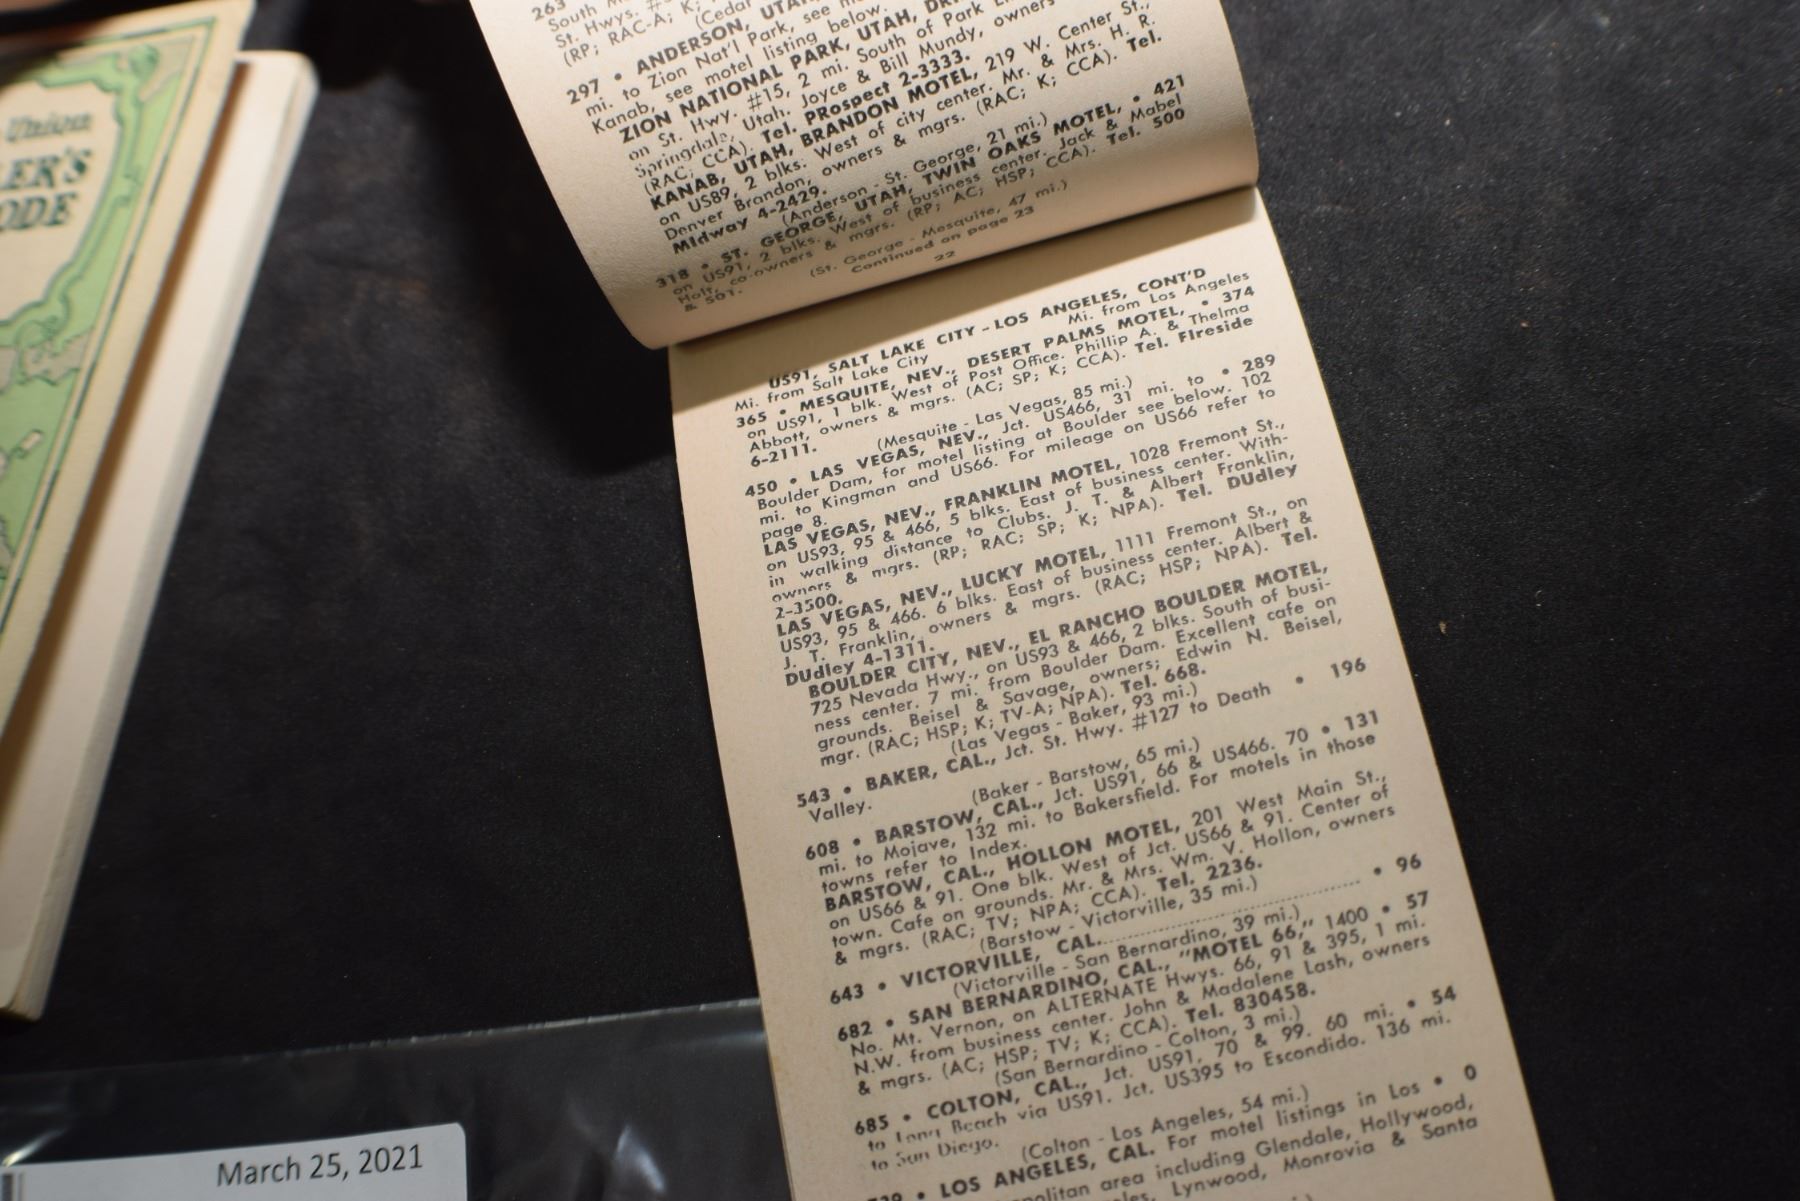 Union
LER'S
ODE
263
South
St. Hwys.
(RP; RAC-A; K;
(Cedar
297 • ANDERSON, UTAH,
mi. to Zion Nat'l Park, see
Kanab, see motel listing below.
ZION NATIONAL PARK, UTAH,
on St. Hwy. #15, 2 mi. South of Park
Springdale, Utah. Joyce & Bill Mundy, owners
(RAC; CCA). Tel. PRospect 2-3333.
KANAB, UTAH, BRANDON MOTEL, 219 W. Center St.,
on US89, 2 blks. West of city center. Mr. & Mrs. H. R.
Denver Brandon, owners & mgrs. (RAC; K; CCA). Tel.
MIdway 4-2429.
(Anderson - St. George, 21 mi.)
318 • ST. GEORGE, UTAH, TWIN OAKS MOTEL, • 421
on US91, 2 blks. West of business center. Jack & Mabel
Holt, co-owners & mgrs. (RP; AC; HSP; CCA). Tel. 500
& 501.
(St. George - Mesquite, 47 mi.)
Continued on page 23
22
US91, SALT LAKE CITY - LOS ANGELES, CONT'D
Mi. from Salt Lake City Mi. from Los Angeles
365 • MESQUITE, NEV., DESERT PALMS MOTEL, • 374
on US91, 1 blk. West of Post Office. Phillip A. & Thelma
Abbott, owners & mgrs. (AC; SP; K; CCA). Tel. FIreside
6-2111.
(Mesquite - Las Vegas, 85 mi.)
450 • LAS VEGAS, NEV., Jct. US466, 31 mi. to • 289
Boulder Dam, for motel listing at Boulder see below. 102
mi. to Kingman and US66. For mileage on US66 refer to
page 8.
LAS VEGAS, NEV., FRANKLIN MOTEL, 1028 Fremont St.,
on US93, 95 & 466, 5 blks. East of business center. With-
in walking distance to Clubs. J. T. & Albert Franklin,
owners & mgrs. (RP; RAC; SP; K; NPA). Tel. DUdley
2-3500.
LAS VEGAS, NEV., LUCKY MOTEL, 1111 Fremont St., on
US93, 95 & 466. 6 blks. East of business center. Albert &
J. T. Franklin, owners & mgrs. (RAC; HSP; NPA). Tel.
DUdley 4-1311.
BOULDER CITY, NEV., EL RANCHO BOULDER MOTEL,
725 Nevada Hwy., on US93 & 466, 2 blks. South of busi-
ness center. 7 mi. from Boulder Dam. Excellent cafe on
grounds. Beisel & Savage, owners; Edwin N. Beisel,
mgr. (RAC; HSP; K; TV-A; NPA). Tel. 668.
(Las Vegas - Baker, 93 mi.)
543 • BAKER, CAL., Jct. St. Hwy. #127 to Death • 196
Valley.
(Baker - Barstow, 65 mi.)
608 • BARSTOW, CAL., Jct. US91, 66 & US466. 70 • 131
mi. to Mojave, 132 mi. to Bakersfield. For motels in those
towns refer to Index.
BARSTOW, CAL., HOLLON MOTEL, 201 West Main St.,
on US66 & 91. One blk. West of Jct. US66 & 91. Center of
town. Cafe on grounds. Mr. & Mrs. Wm. V. Hollon, owners
& mgrs. (RAC; TV; NPA; CCA). Tel. 2236.
(Barstow - Victorville, 35 mi.)
643 • VICTORVILLE, CAL. ........................................ • 96
(Victorville - San Bernardino, 39 mi.)
682 • SAN BERNARDINO, CAL., "MOTEL 66,,, 1400 • 57
No. Mt. Vernon, on ALTERNATE Hwys. 66, 91 & 395, 1 mi.
N.W. from business center. John & Madalene Lash, owners
& mgrs. (AC; HSP; TV; K; CCA). Tel. 830458.
(San Bernardino - Colton, 3 mi.)
685 • COLTON, CAL., Jct. US91, 70 & 99. 60 mi. • 54
to Long Beach via US91. Jct. US395 to Escondido. 136 mi.
to San Diego.
(Colton - Los Angeles, 54 mi.)
• LOS ANGELES, CAL. For motel listings in Los • 0
area including Glendale, Hollywood,
Lynwood, Monrovia & Santa
March 25, 2021